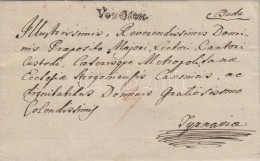 Von Ofen
Buda
Illustrissimis, Reverendissimis Domi-
nis Praeposito Majori, Lectori Cantori
Custodi, Caeterisque Metropolitanae
Ecclesiae Strigoniensis Canonicis, ac
Dignitatibus Dominis Gratiosissimo
Colendissimis
Tyrnaviae